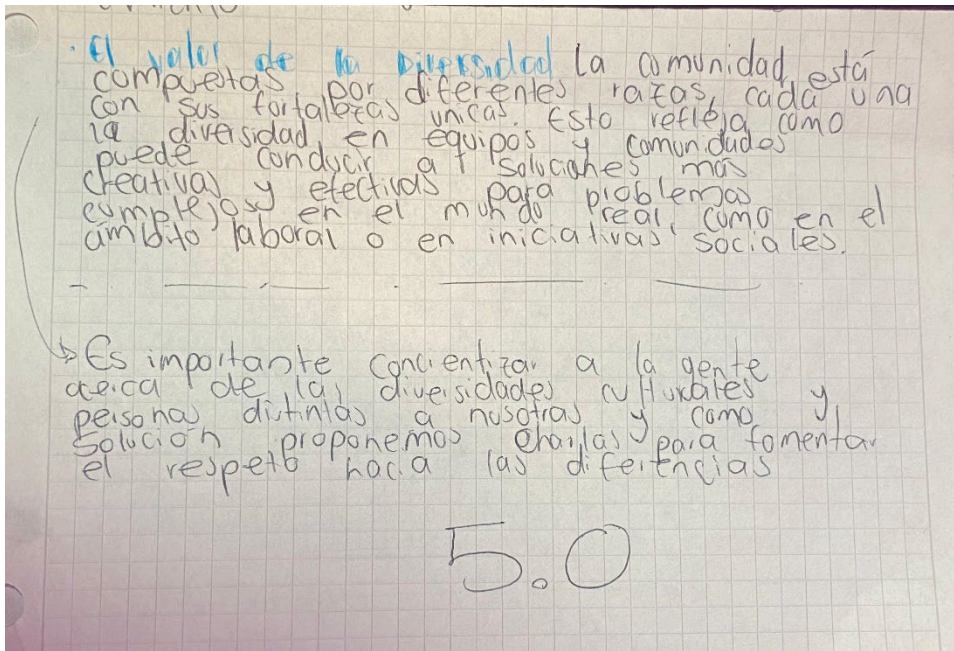 · El valor de la Diversidad La comunidad está
compuestas por diferentes razas, cada una
con sus fortalezas unicas. Esto refleja como
la diversidad en equipos y comunidades
puede conducir a soluciones más
creativas y efectivas para problemas
cumplejos en el mundo real, como en el
ámbito laboral o en iniciativas sociales.
→ Es importante concientizar a la gente
acerca de las diversidades culturales y
personas distintas a nosotras y como
solución proponemos charlas para fomentar
el respeto hacia las diferencias
5.0